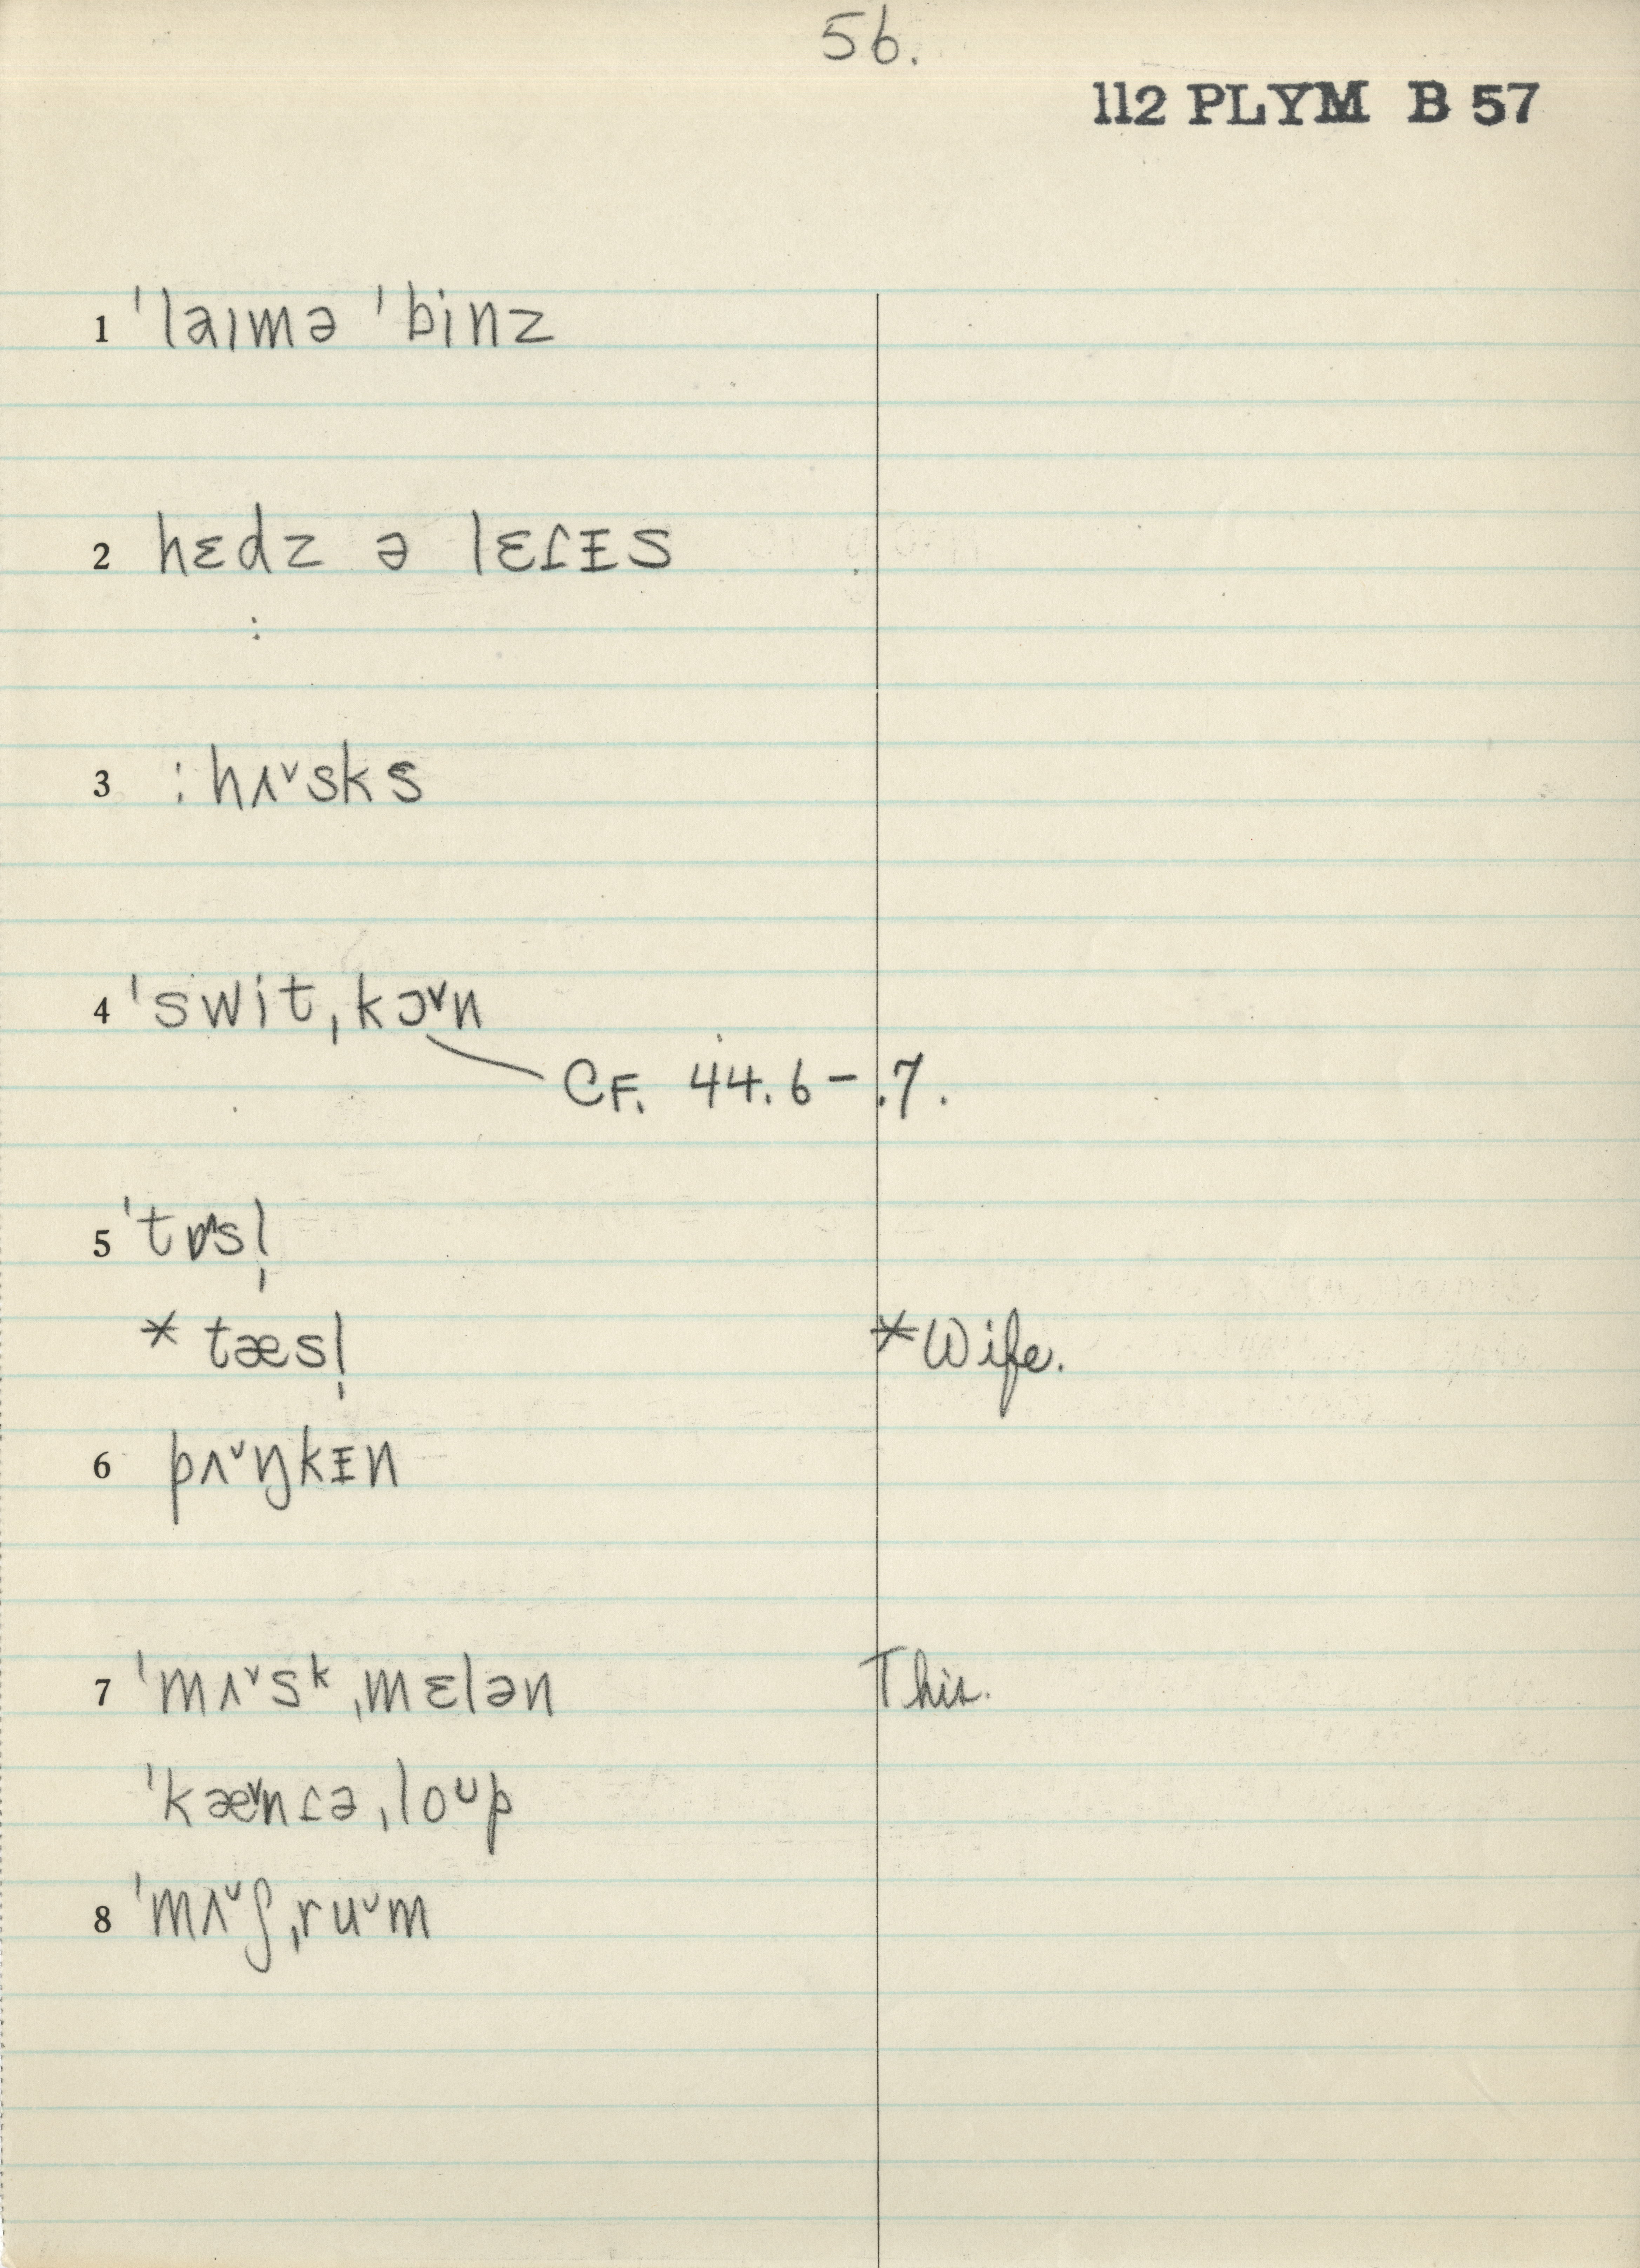 56.
112 PLYM B 57
1 ˈlaɪmə ˈbinz
2 hɛdz ə lɛɾᵻs
:
3 : hʌ˅sks
4 ˈswitˌkɔ˅n
CF. 44.6–.7.
5 ˈtɒ˄sl̩
* tæsl̩ *Wife.
6 pʌ˅ŋkᵻn
7 ˈmʌ˅sᵏˌmɛlən This.
ˈkæ˅nɾəˌloᶷp
8 ˈmʌ˅ʃˌru˅m